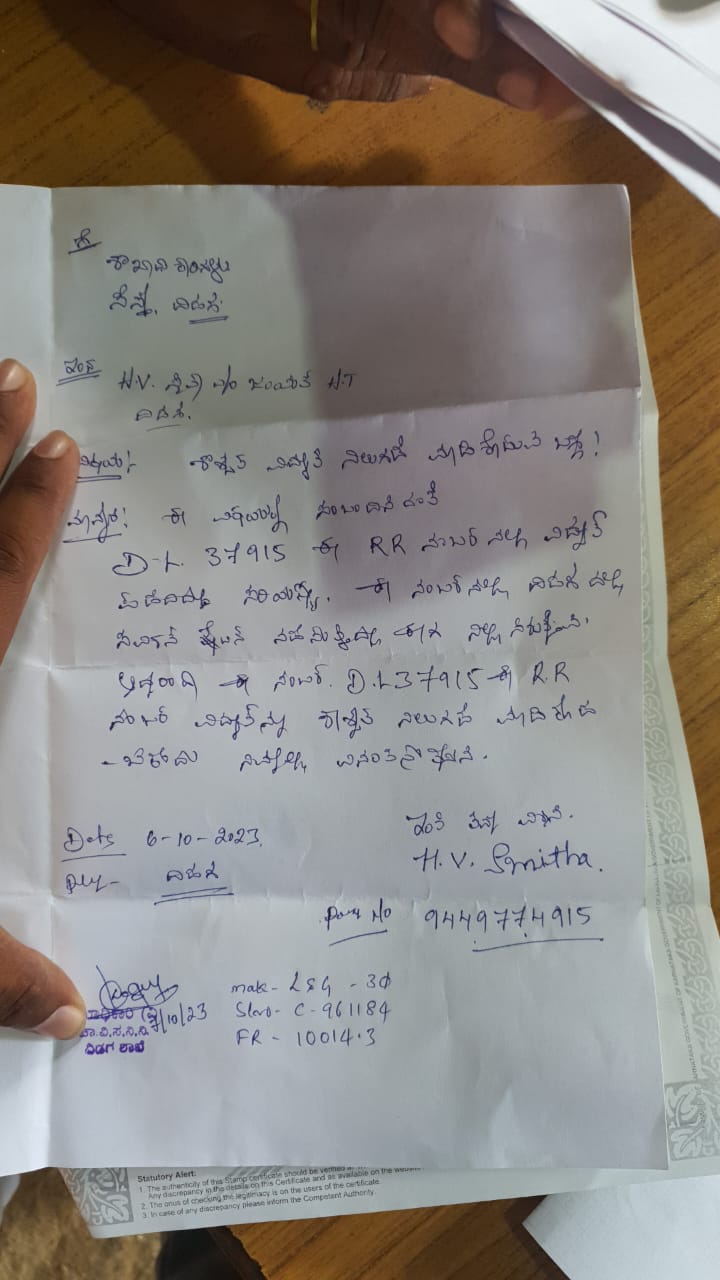 ಗೆ
ಶಾಖಾಧಿಕಾರಿಗಳು
ಸೆಸ್ಕ, ದಿಡಗ.
ಇಂದ
H.V. ಸ್ಮಿತಾ W/o ಜಯಂತ H.T
ದಿಡಗ.
ವಿಷಯ:- ಶಾಶ್ವತ ವಿದ್ಯುತ್ ನಿಲುಗಡೆ ಮಾಡಿಕೊಡುವ ಬಗ್ಗೆ!
ಮಾನ್ಯರೆ! ಈ ವಿಷಯಕ್ಕೆ ಸಂಬಂಧಿಸಿದಂತೆ
D.L. 37915 ಈ RR ನಂಬರ್ ನಲ್ಲಿ ವಿದ್ಯುತ್
ಪಡೆದಿದ್ದು ಸರಿಯಷ್ಟೆ. ಈ ನಂಬರ್ ನಲ್ಲಿ ದಿಡಗದಲ್ಲಿ
ಈಗ
ಆದ್ದರಿಂದ ಈ ನಂಬರ್. D.L37915 ಈ R.R
ನಂಬರ್ ವಿದ್ಯುತ್‌ನ್ನು ಶಾಶ್ವತ ನಿಲುಗಡೆ ಮಾಡಿಕೊಡ
-ಬೇಕೆಂದು ನಿಮ್ಮಲ್ಲಿ ವಿನಂತಿಸಿಕೊಳ್ಳುತ್ತೇನೆ.
Date 6-10-2023.
ಇಂತಿ ತಮ್ಮ ವಿಶ್ವಾಸಿ.
H.V. Smitha.
ದಿಡಗ
No 9449774915
7/10/23
ಚಾ.ವಿ.ಸ.ನಿ.ನಿ.
ದಿಡಗ ಶಾಖೆ
make- L&G - 3Φ
Slno- C-961184
FR - 10014.3
Statutory Alert:
1. The authenticity of this Stamp certificate should be verified at
Any discrepancy in the details on this Certificate and as available on the
2. The onus of checking the legitimacy is on the users of the certificate.
3. In case of any discrepancy please inform the Competent Authority.